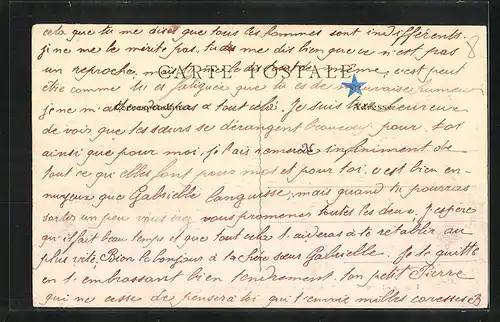 cela que tu me dises que tous les hommes sont indifférents.
je ne me le mérite pas. tu me dis bien que ce n'est pas
un reproche, mais tu me le dis tout de même, c'est peut
CARTE POSTALE
être comme tu es fatiguée que tu es de mauvaise humeur
je ne m'attendais pas à tout cela. Je suis bien heureux
Correspondance
Adresse
de vois que tes sœurs se dérangent beaucoup pour toi
ainsi que pour moi. je les remercie infiniment de
tout ce que elles font pour moi et pour toi. c'est bien en-
nuyeux que Gabrielle languisse, mais quand tu pourras
sortir un peu vous irez vous promener toutes les deux, j'espère
qu'il fait beau temps et que tout cela t'aidera à te rétablir au
plus vite, Bien le bonjour à ta chère sœur Gabrielle. Je te quitte
en t'embrassant bien tendrement. ton petit Pierre
qui ne cesse de penser à toi qui t'envoie milles caresses
8